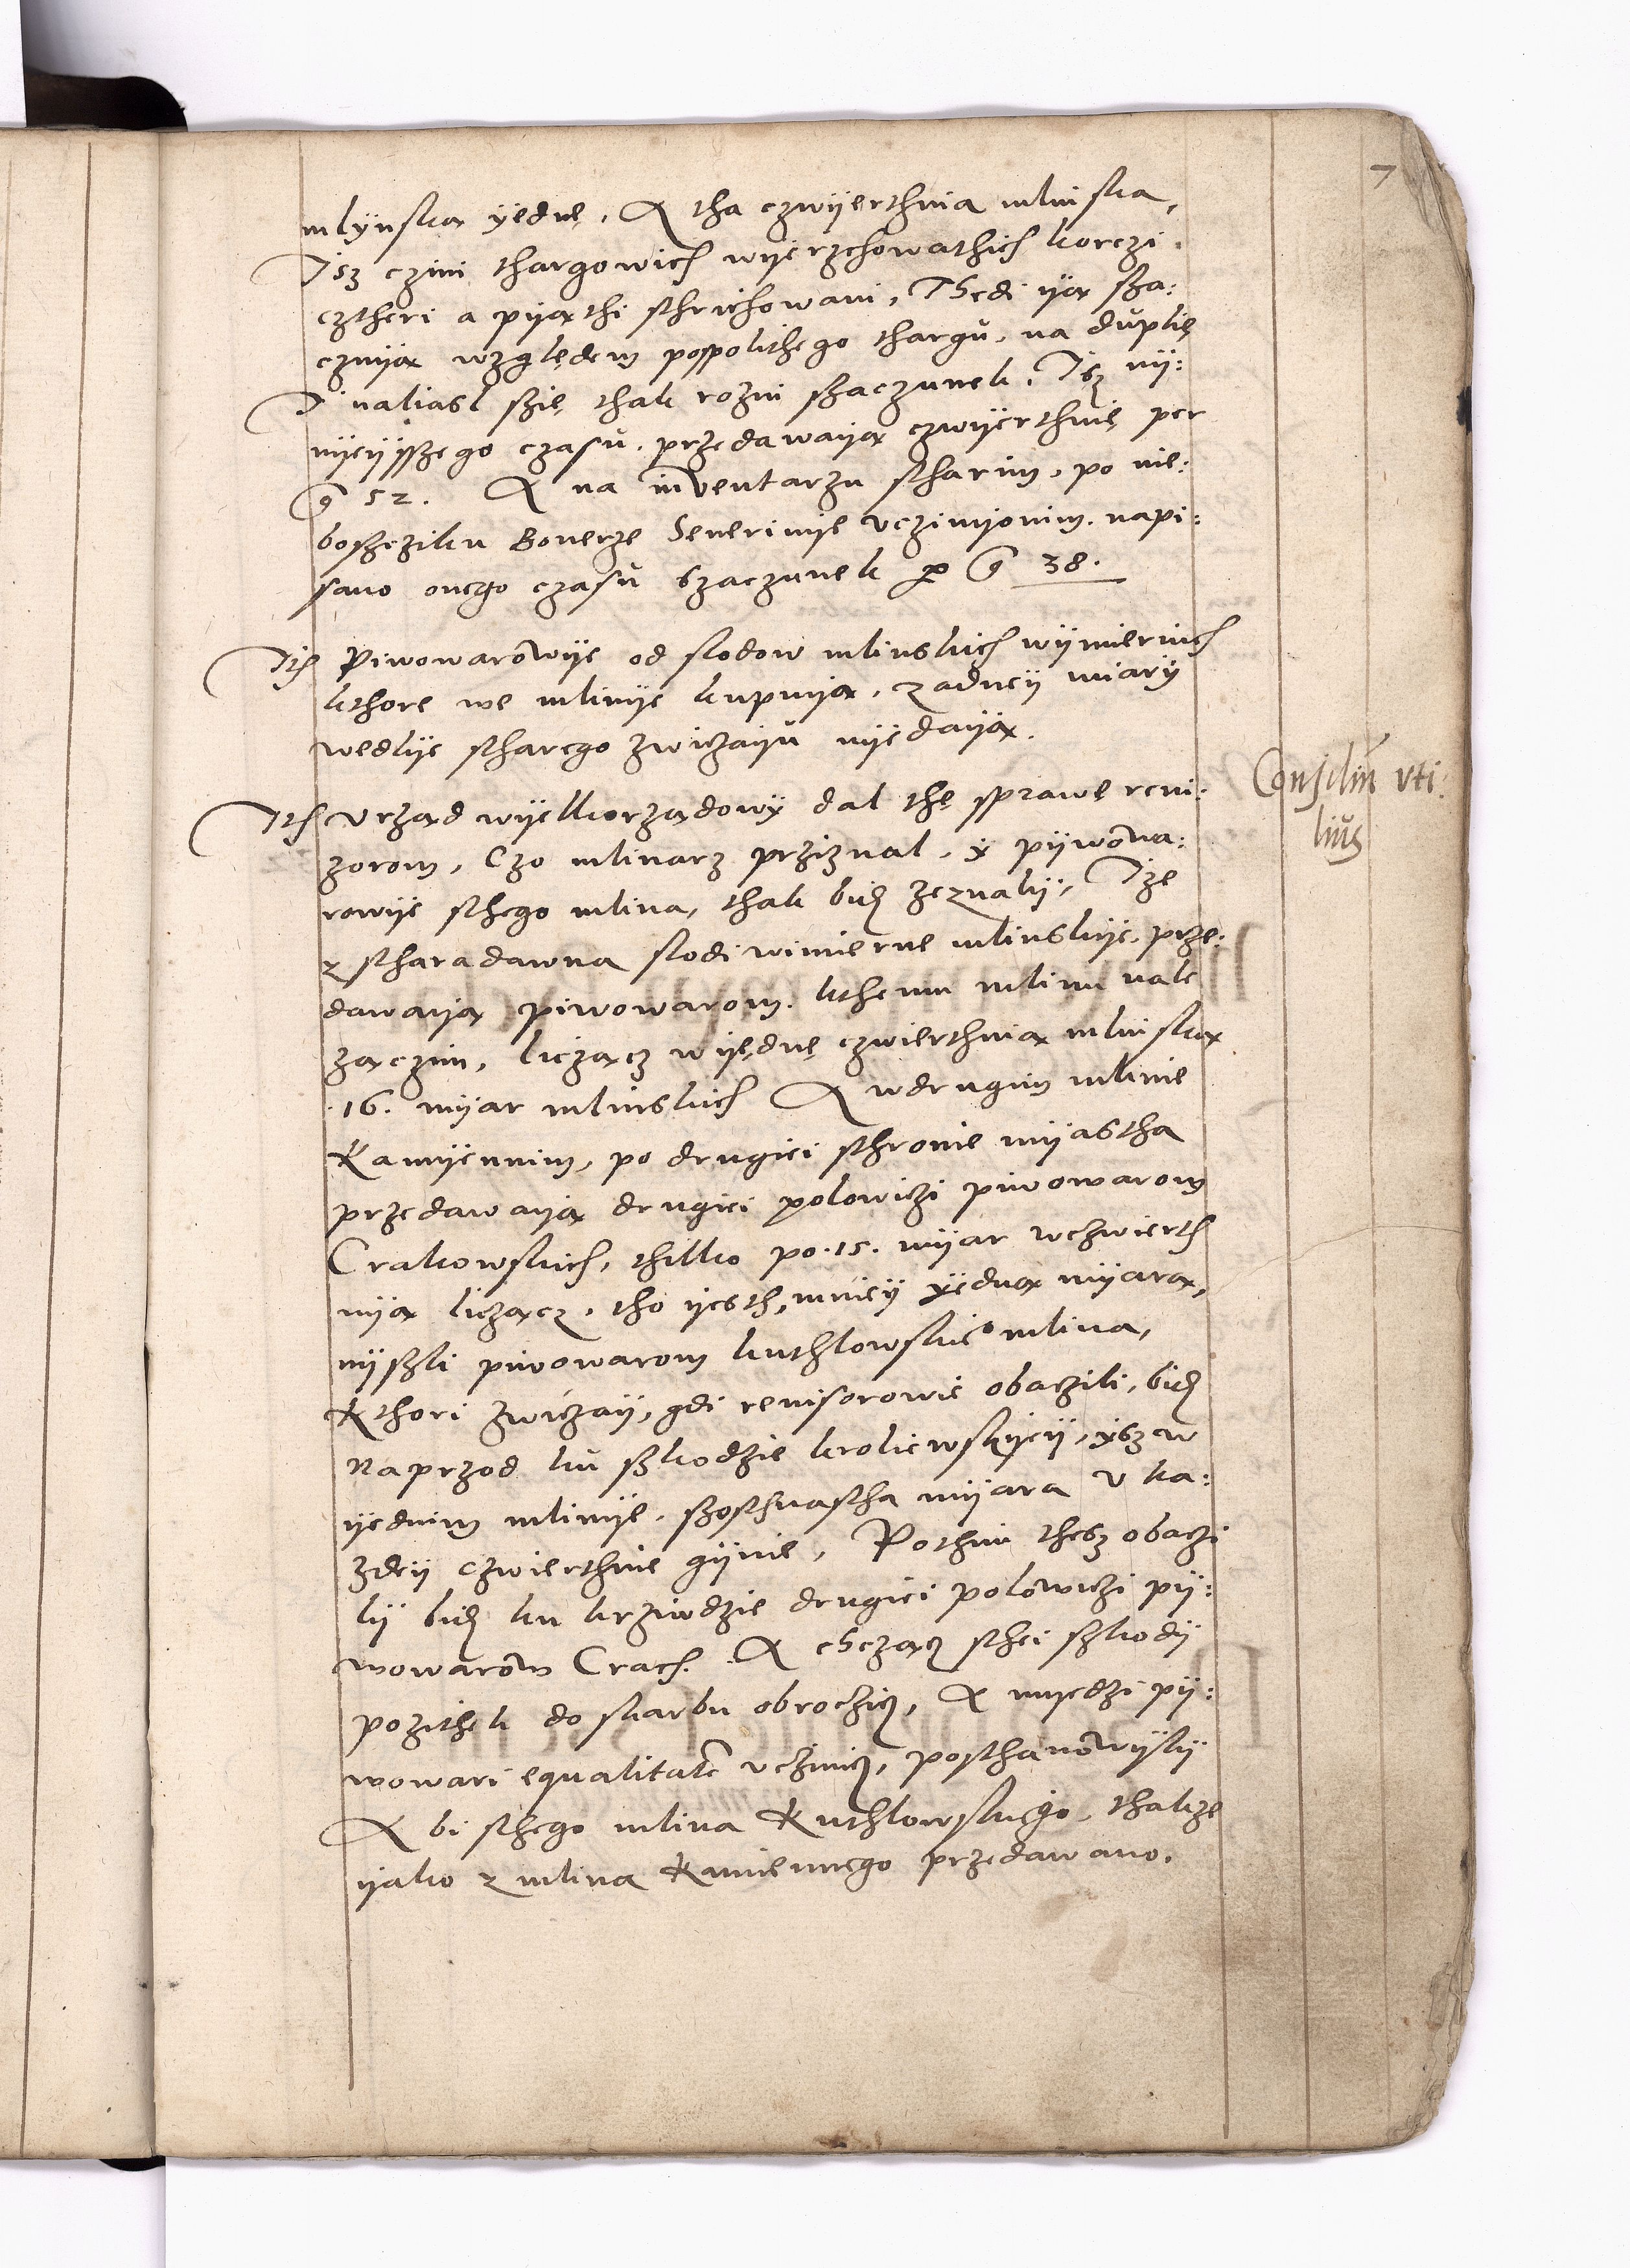 7
mlynską yednę, A tha czwyerthnia mlinska,
Isz czini thargowich wyerzchowathich korczi.
cztheri a pyąthi schrichowani, Thedi yą sza:
czuyą względem pospolithego thargu, na duplię
I naliasl szię thak rozni szaczunek. Isz ny:
nyeysszego czasu, przedawayą czwyerthnię per
g 52. A na inventarzu scharim, po nie:
boszcziku Bonerze Severinye uczinyonim. napi:
sano onego czasu szaczunek per g 38.
Ith Piwowarowye od slodow mlinskich wymiernich
kthore we mlinye kupuyą, zadney miary
wedlye scharego zwiczayu nyedayą.
Ith Urząd wyelkorządowy dal thę sprawę reui:
zorom, Czo mlinarz prziznal, y pywowa:
rowye schego mlina, thak bicz zeznaly, Ize
z scharadawna slodi wimierne mlinskye, prze:
dawayą piwowarom. kthemu mlinu nale
żączim, licząc wyędnę czwierthnią mlinską
16. myar mlinskich A wdrugim mlinie
Kamyennim, po drugiei schronie myastha
przedawayą drugiei polowiczi piwowarom
Crakowskich, thilko po .15. myar wczwierth
nyą licżącz, tho yesth mniey yedną myarą,
nyszli piwowarom kuthlowskieo mlina,
Kthori zwiczay, gdi revisorowie obaczili, bicz
Naprzod ku szkodzie kroliewskyey, ysz w
yednim mlinye, szosthnastha myara v ka:
zdey czwierthnie gynie, Pothim thesz obaczi
ly bicz ku krziwdzie drugiei polowiczi py:
wowarow Crach. A chcżącz schei szkody
pozithek do skarbu obroczicz, A myedzi py:
wowari equalitatem uczinicz, posthanowyly
A bi schego mlina Kuthlowskiego, thakze
yako z mlina Kamiennego przedawano.
Consiliu uti:
lius